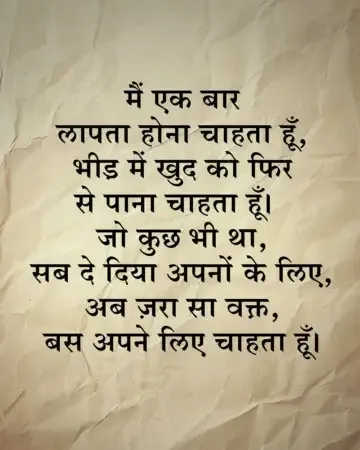 मैं एक बार
लापता होना चाहता हूँ,
भीड में खुद को फिर
से पाना चाहता हूँ।
जो कुछ भी था,
सब दे दिया अपनों के लिए,
अब ज़रा सा वक्त,
बस अपने लिए चाहता हूँ।